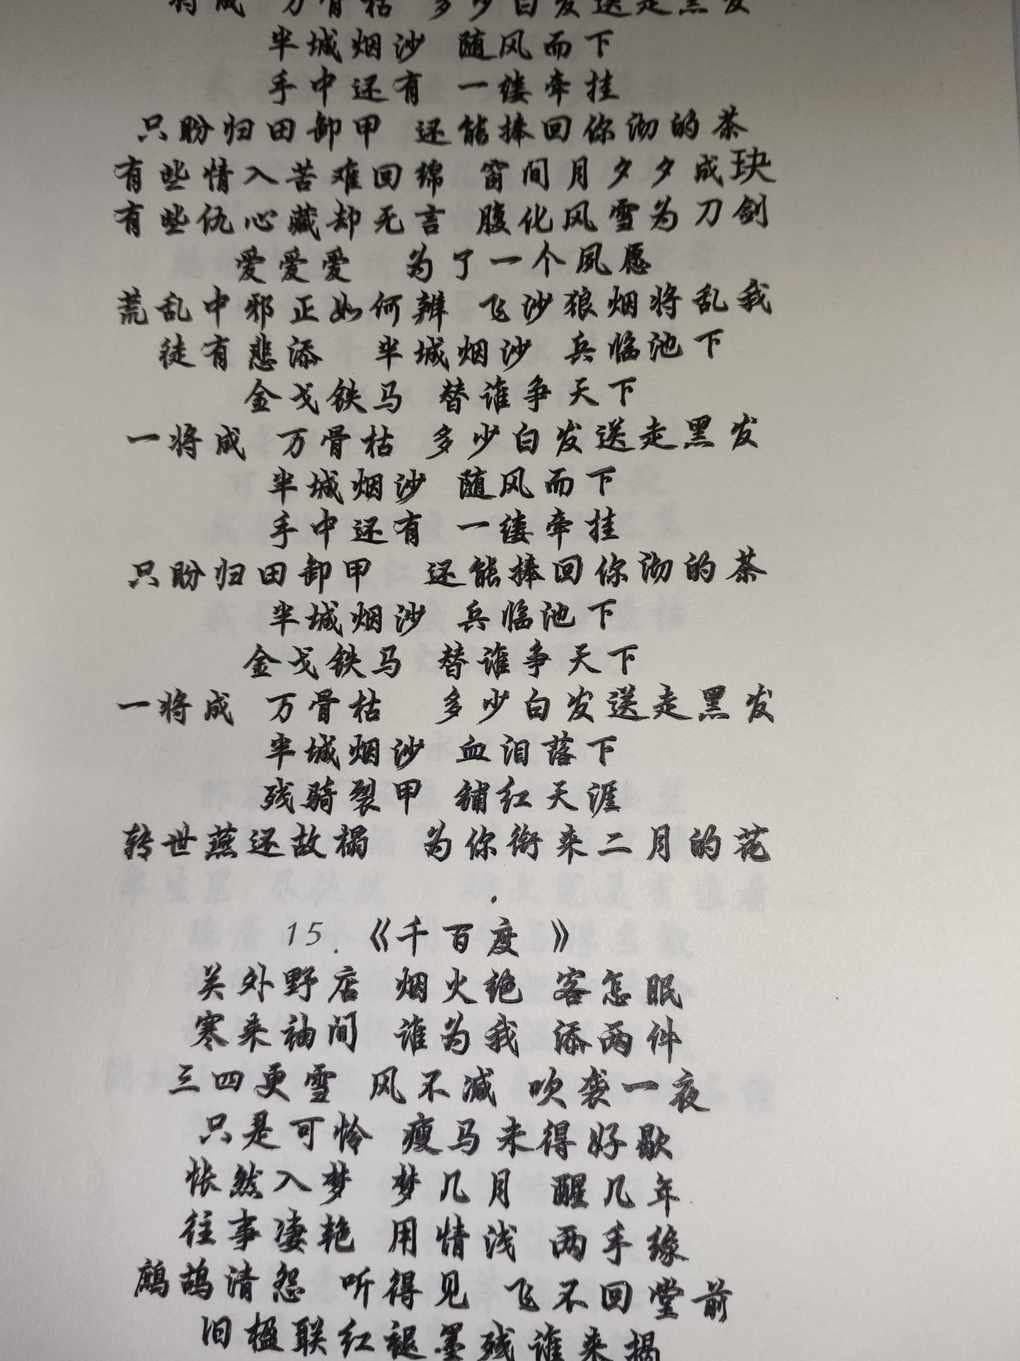 将成 万骨枯 多少白发送走黑发
半城烟沙 随风而下
手中还有 一缕牵挂
只盼归田卸甲 还能捧回你沏的茶
有些情入苦难回绵 窗间月夕夕成玦
有些仇心藏却无言 腹化风雪为刀剑
爱爱爱 为了一个夙愿
荒乱中邪正如何辨 飞沙狼烟将乱我
徒有悲添 半城烟沙 兵临池下
金戈铁马 替谁争天下
一将成 万骨枯 多少白发送走黑发
半城烟沙 随风而下
手中还有 一缕牵挂
只盼归田卸甲 还能捧回你沏的茶
半城烟沙 兵临池下
金戈铁马 替谁争天下
一将成 万骨枯 多少白发送走黑发
半城烟沙 血泪落下
残骑裂甲 铺红天涯
转世燕还故榻 为你衔来二月的花
15.《千百度》
关外野店 烟火绝 客怎眠
寒来袖间 谁为我 添两件
三四更雪 风不减 吹袭一夜
只是可怜 瘦马未得好歇
怅然入梦 梦几月 醒几年
往事凄艳 用情浅 两手缘
鹧鸪清怨 听得见 飞不回堂前
旧楹联红褪墨残谁来揭